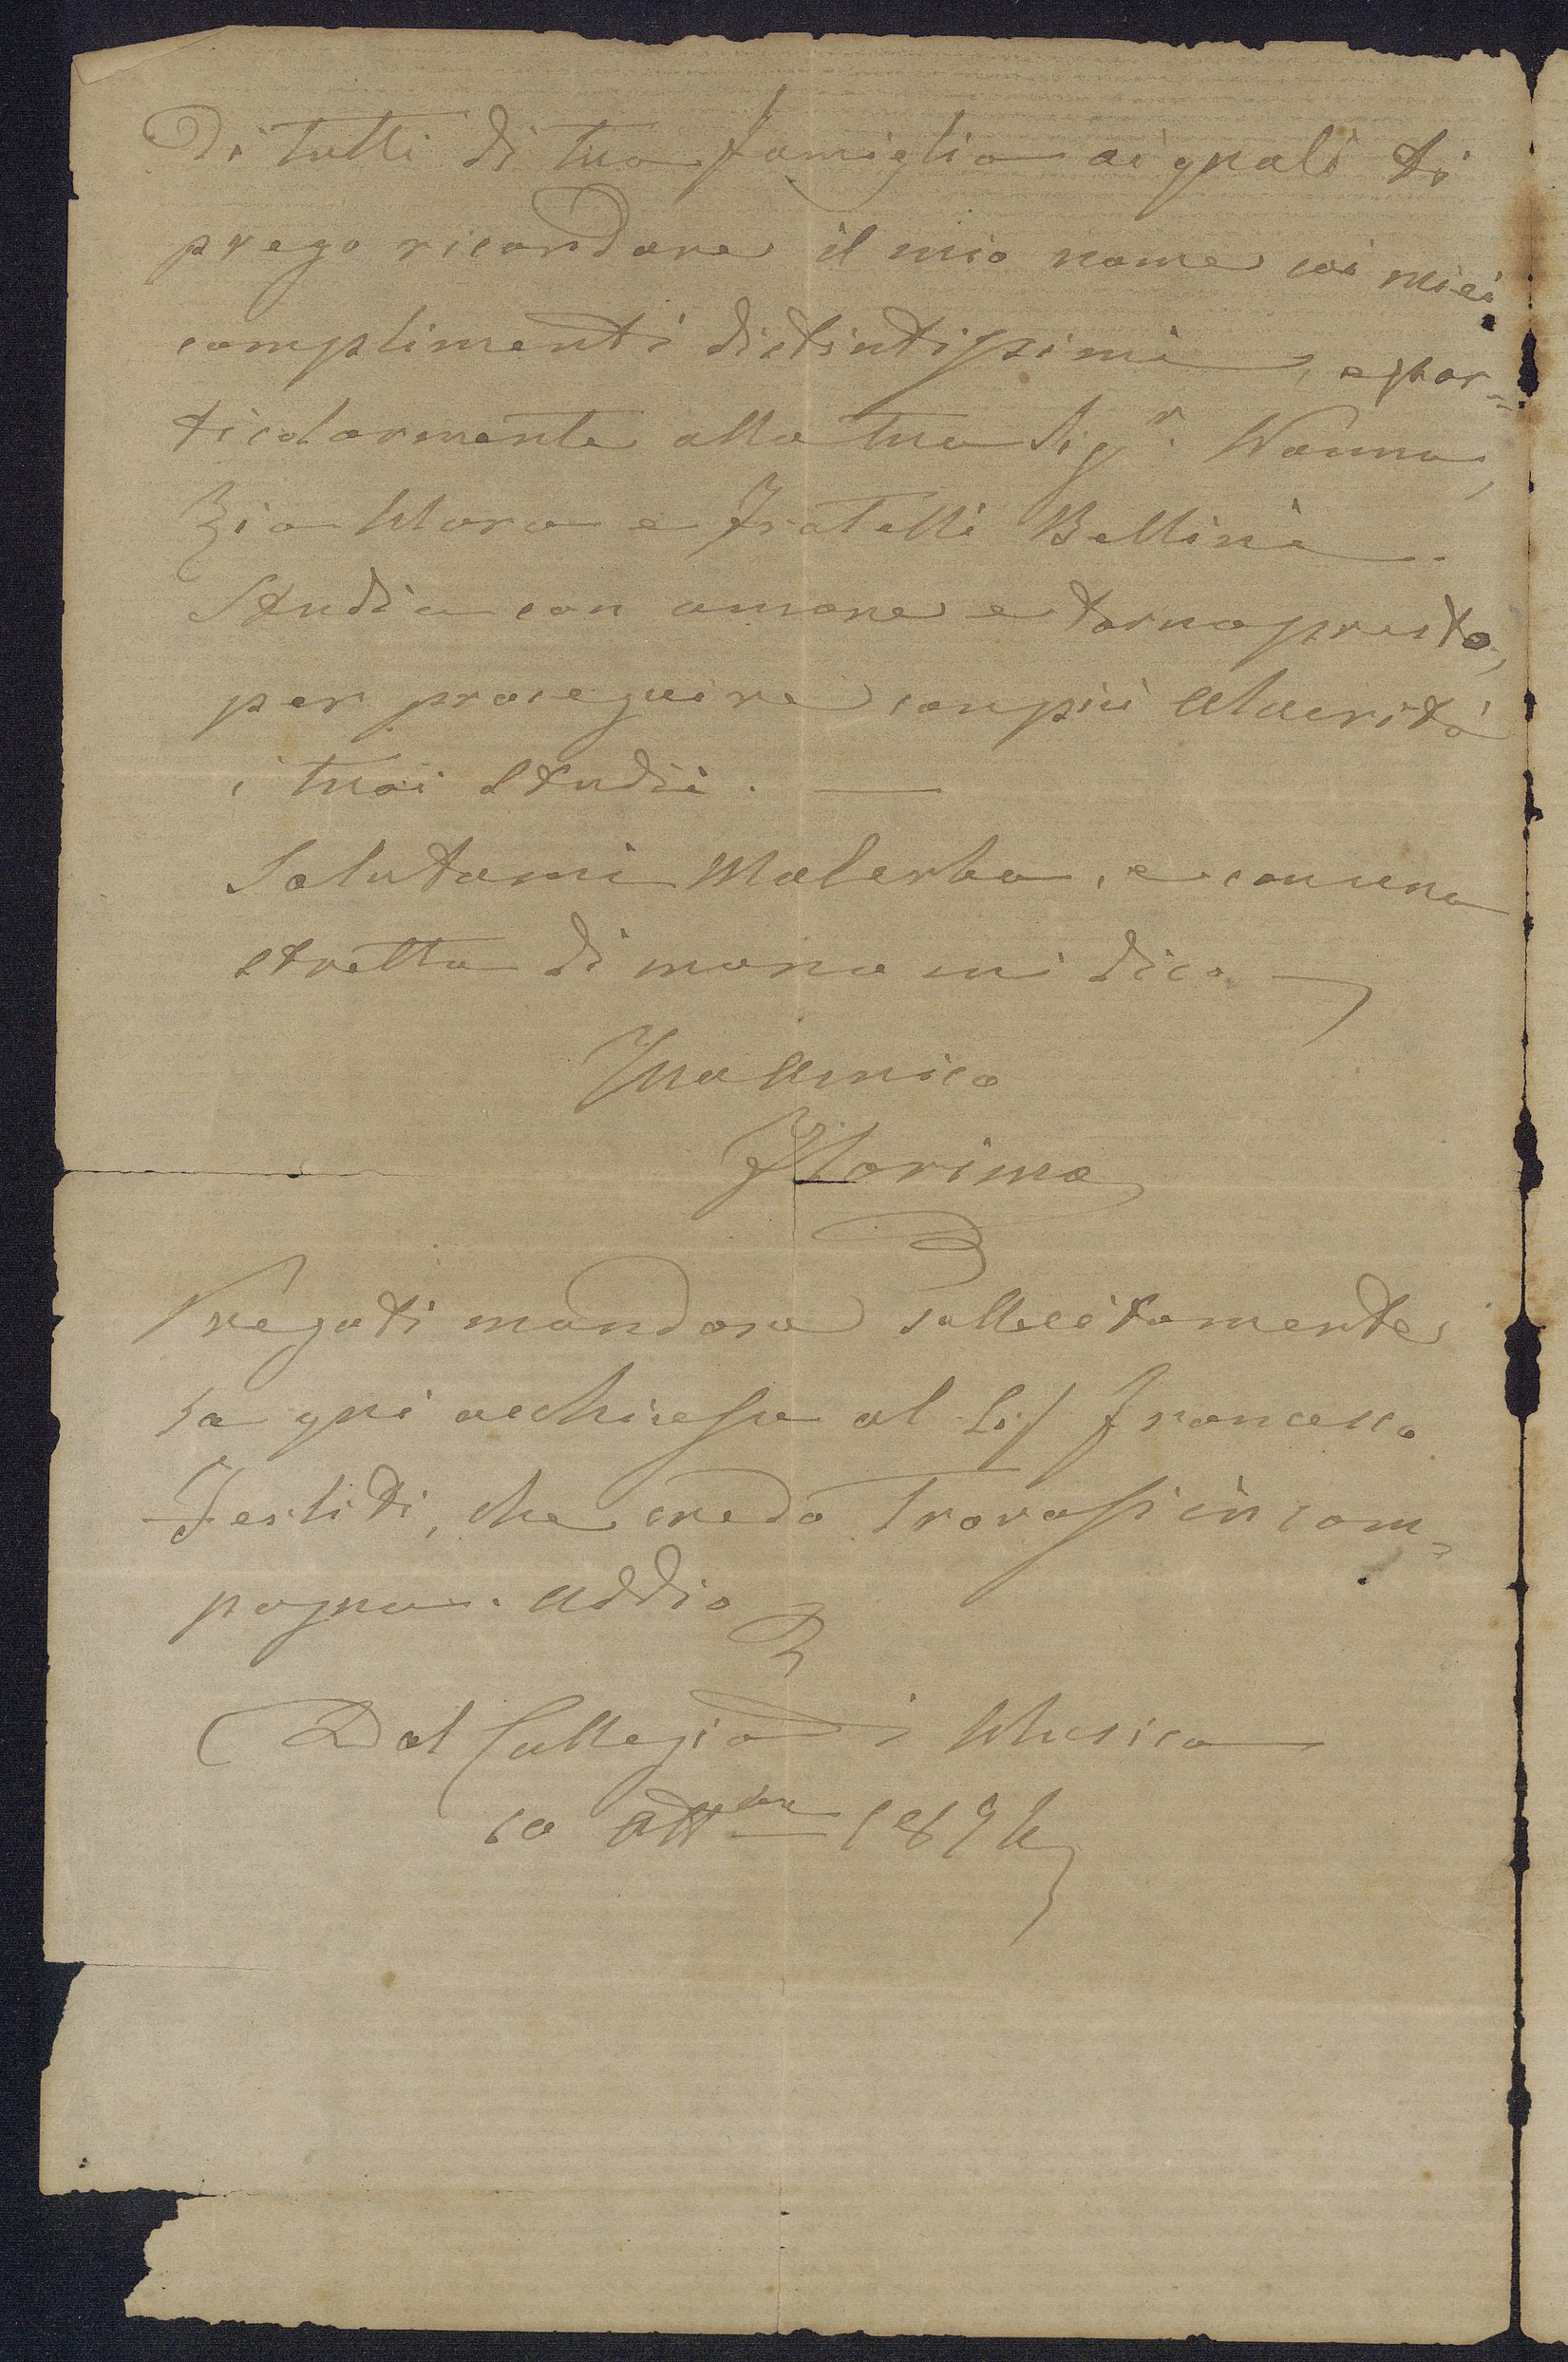 Di tutti di tua famiglia ai quali ti
prego ricordare il mio nome coi miei
complimenti distintissimi, e par=
ticolarmente alla tua Sigr. Nonna,
Zia Mara e Fratelli Bellini.
Studia con amore e torna presto,
per proseguire con più alacrità
i tuoi studii. —
Salutami Malerba, e con una
stretta di mano mi dico —
Tuo Amico
Florimo
Pregoti mandare sollecitamente
la qui acchiesa al Sig Francesco
che credo trovasi in cam=
pagna. Addio
Dal Collegio di Musica
10 Ottbre